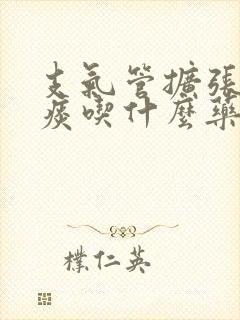 支氣管擴張
痰喫什麼藥
樸仁英